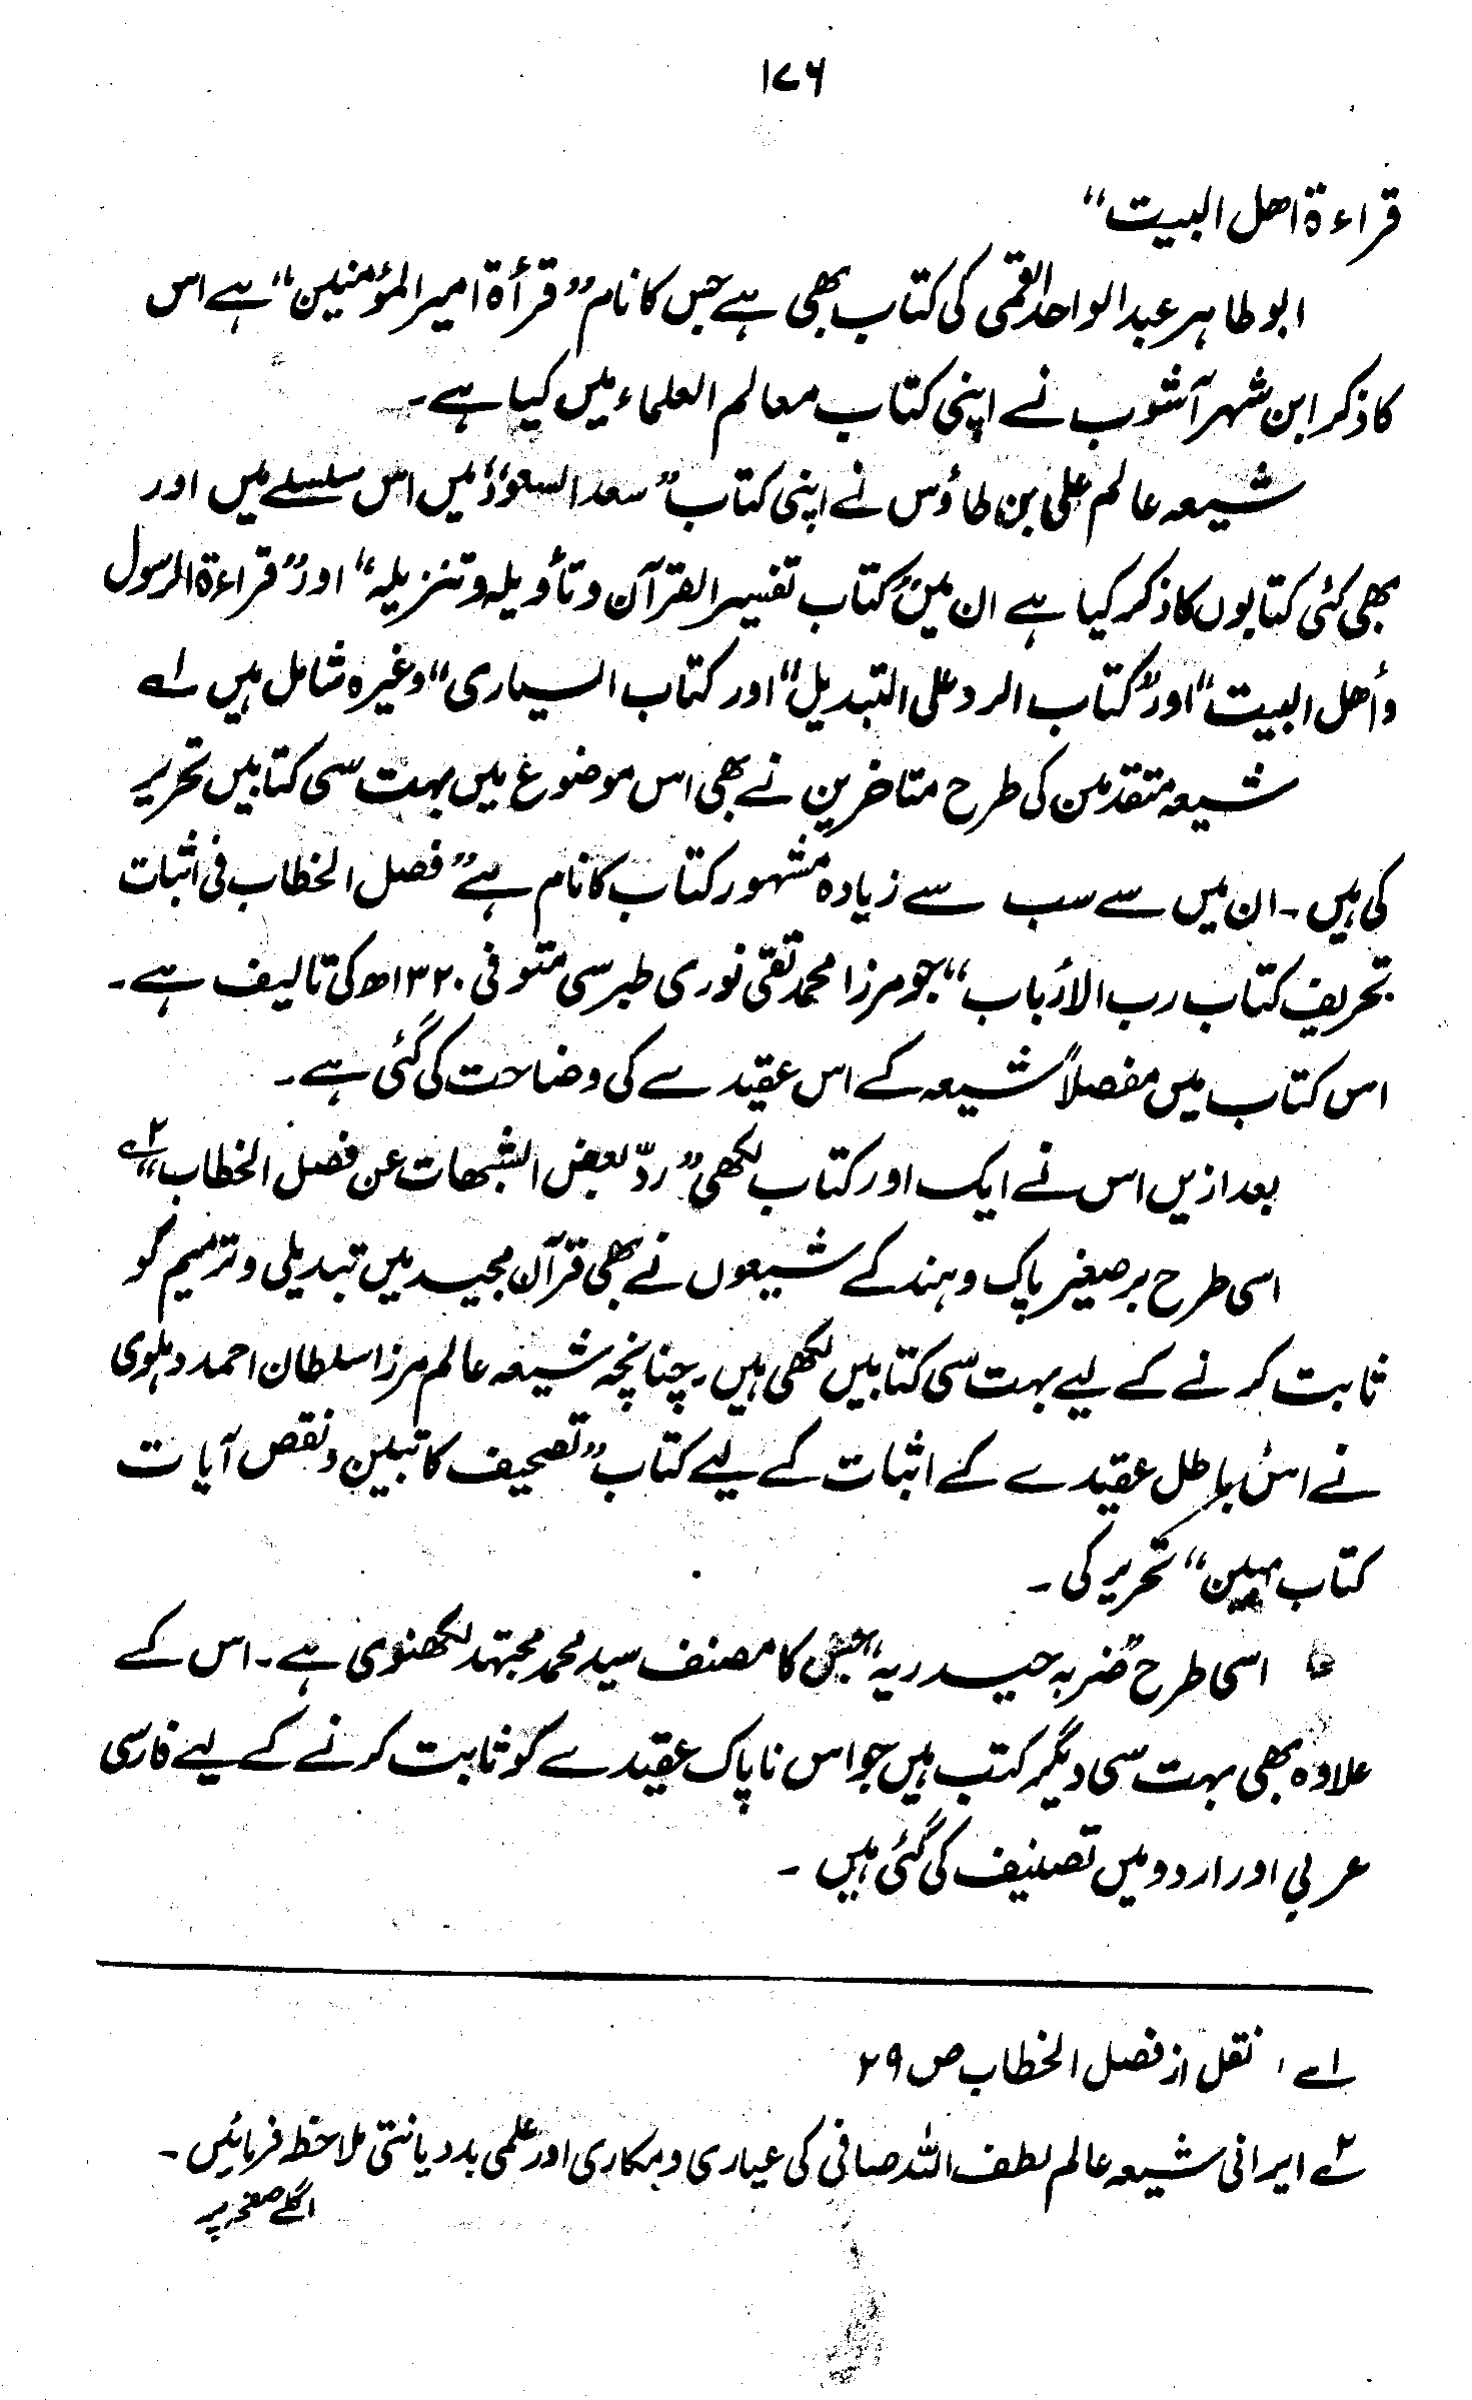 ۱۷۶
قراءۃ اھل البیت"
ابو طاہر عبد الواحد القمی کی کتاب بھی ہے جس کا نام "قرأۃ امیر المؤمنین" ہے اس
کا ذکر ابن شہر آشوب نے اپنی کتاب معالم العلماء میں کیا ہے۔
شیعہ عالم علی بن طاؤس نے اپنی کتاب "سعد السعود" میں اس سلسلے میں اور
بھی کئی کتابوں کا ذکر کیا ہے ان میں "کتاب تفسیر القرآن وتأویلہ وتنزیلہ" اور "قراءۃ الرسول
وأھل البیت" اور "کتاب الرد علی التبدیل" اور کتاب السیاری" وغیرہ شامل ہیں ۱ے
شیعہ متقدمن کی طرح متاخرین نے بھی اس موضوع میں بہت سی کتابیں تحریر
کی ہیں۔ ان میں سے سب سے زیادہ مشہور کتاب کا نام ہے "فصل الخطاب فی اثبات
تحریف کتاب رب الأرباب" جو مرزا محمد تقی نوری طبرسی متوفی ۱۳۲۰ھ کی تالیف ہے۔
اس کتاب میں مفصلاً شیعہ کے اس عقیدے کی وضاحت کی گئی ہے۔
بعد ازیں اس نے ایک اور کتاب لکھی "ردّ بعض الشبھات عن فصل الخطاب" ۲ے
اسی طرح برصغیر پاک و ہند کے شیعوں نے بھی قرآن مجید میں تبدیلی و ترمیم کو
ثابت کرنے کے لیے بہت سی کتابیں لکھی ہیں۔ چنانچہ شیعہ عالم مرزا سلطان احمد دہلوی
نے اس باطل عقیدے کے اثبات کے لیے کتاب "تصحیف کاتبین و نقص آیات
کتاب مبین" تحریر کی۔
اسی طرح "ضربہ حیدریہ" جس کا مصنف سید محمد مجتہد لکھنوی ہے۔ اس کے
علاوہ بھی بہت سی دیگر کتب ہیں جو اس ناپاک عقیدے کو ثابت کرنے کے لیے فارسی
عربی اور اردو میں تصنیف کی گئی ہیں۔
۱ے نقل از فصل الخطاب ص ۲۹
۲ے ایرانی شیعہ عالم لطف اللہ صافی کی عیاری و مکاری اور علمی بددیانتی ملاحظہ فرمائیں۔
اگلے صفحہ پر